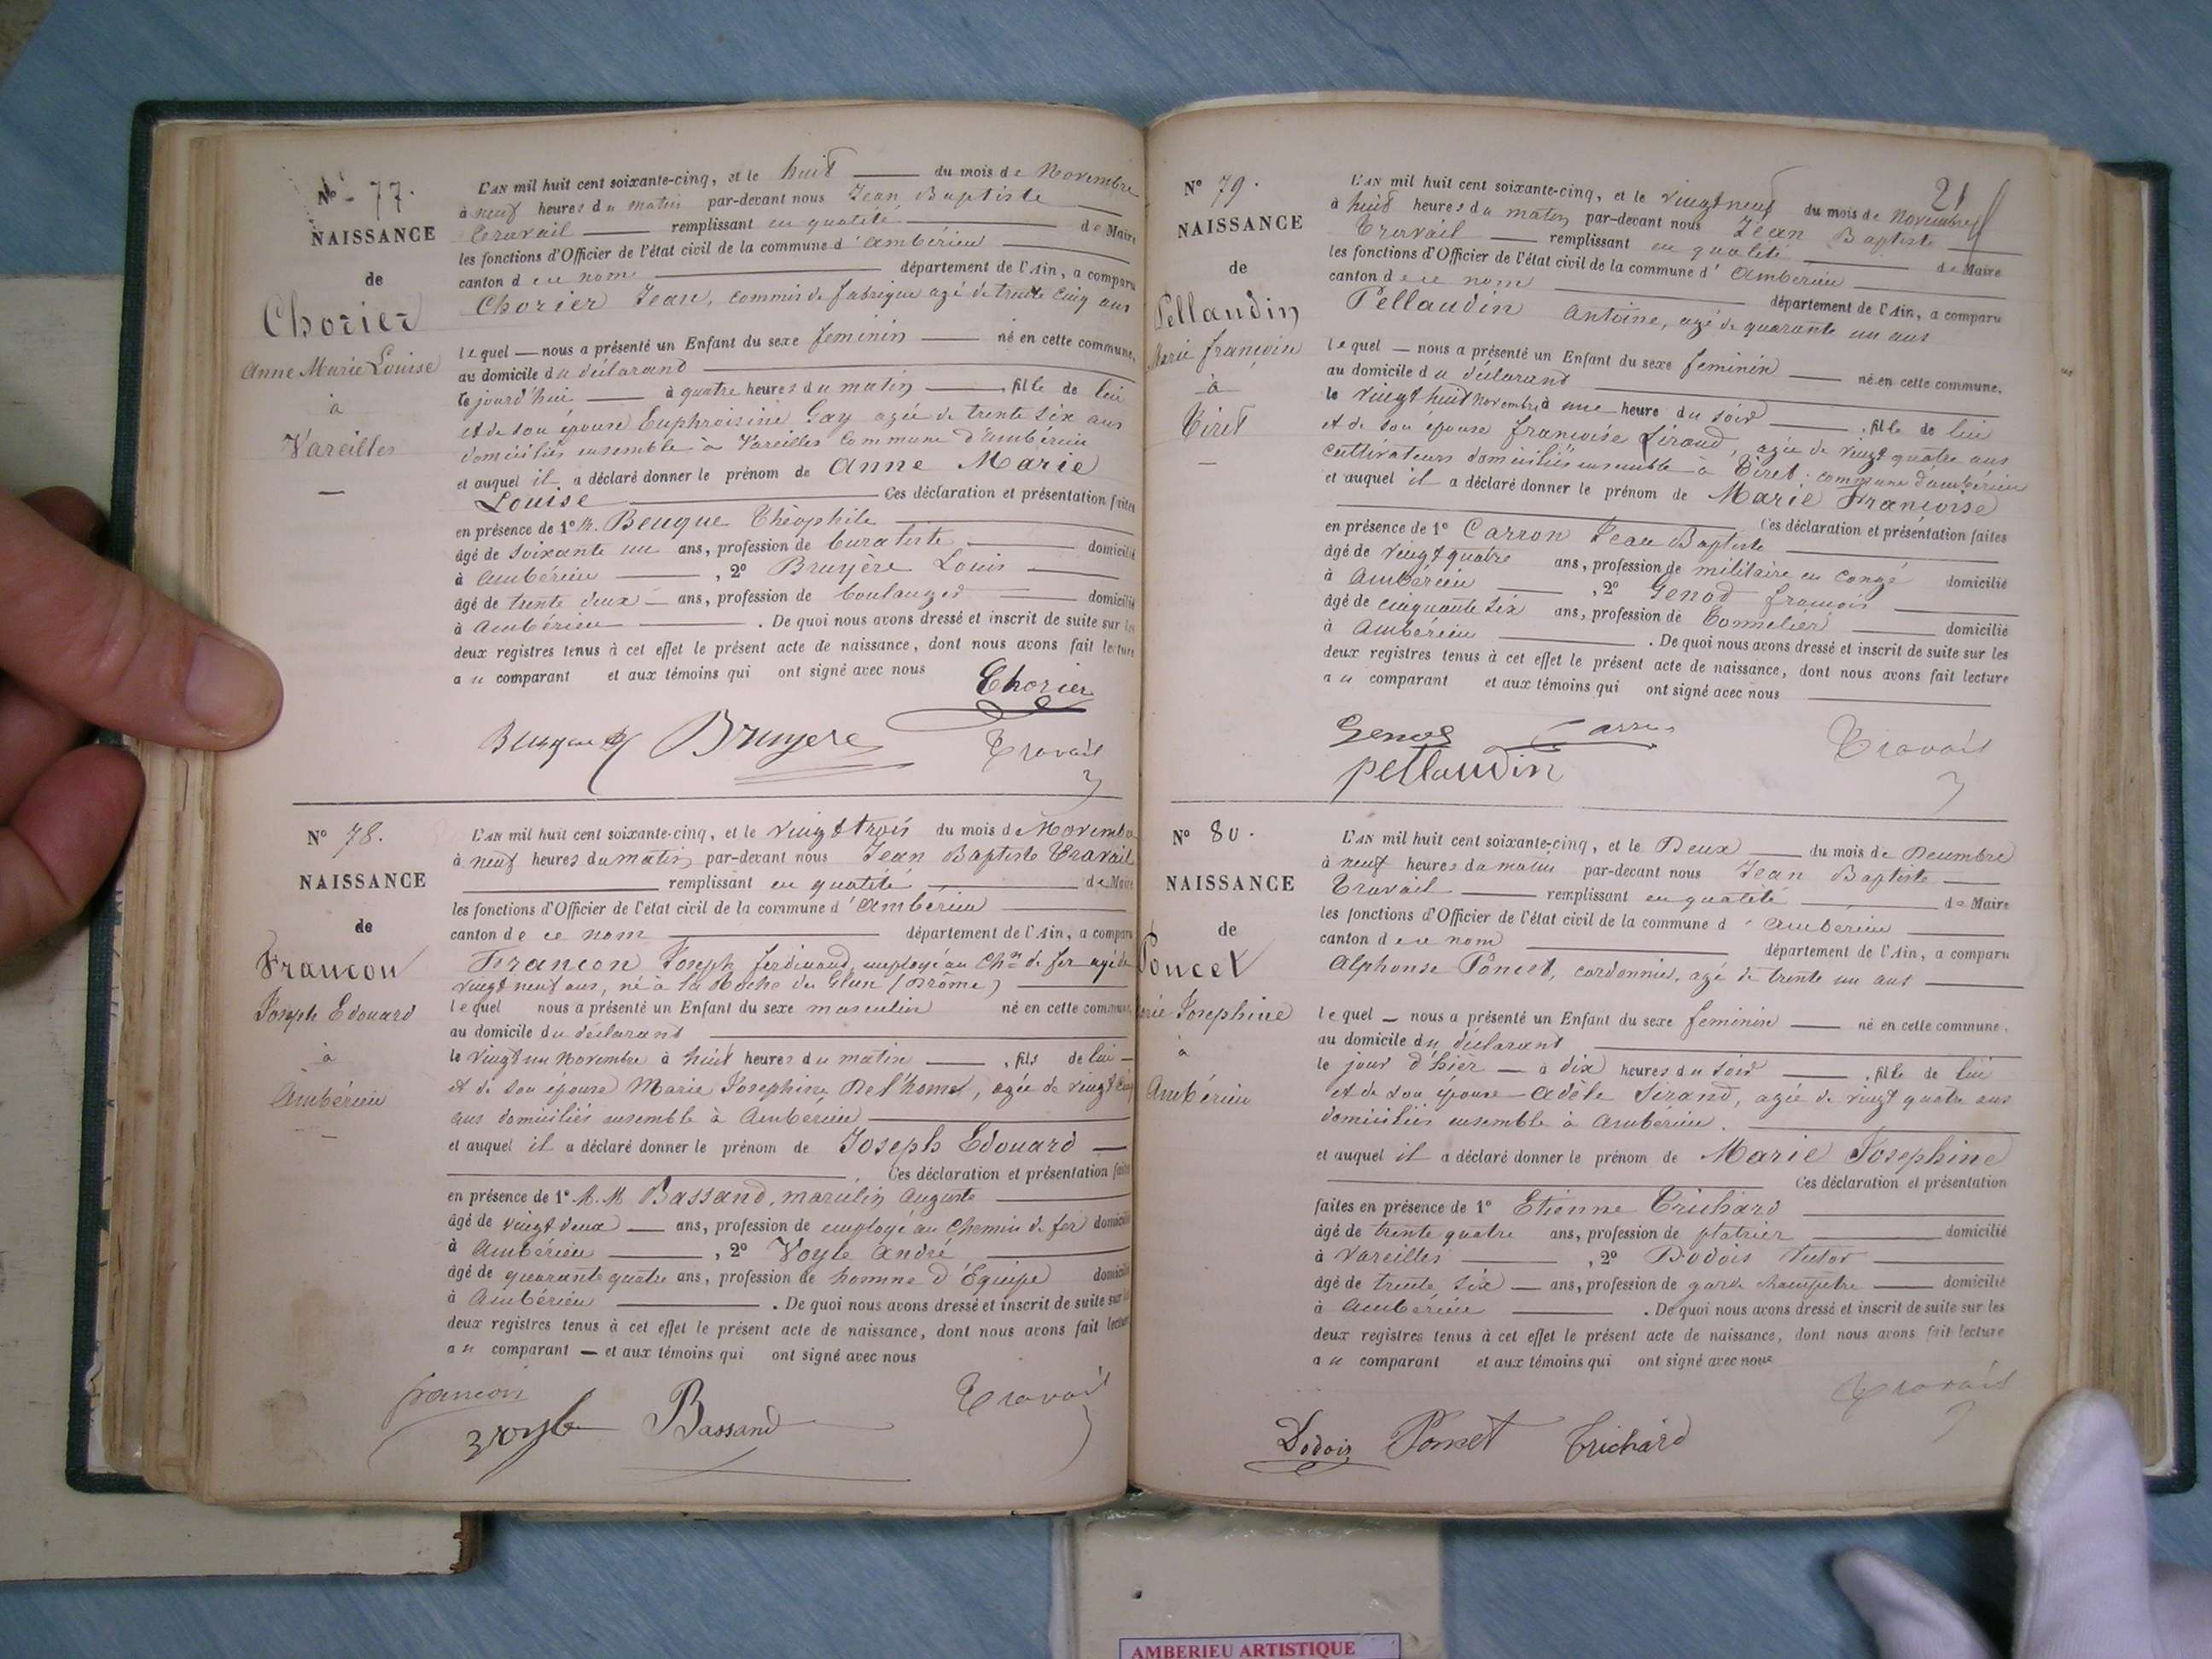 N° 77.
NAISSANCE
de
Chorier
Anne Marie Louise
à
Vareilles
L'AN mil huit cent soixante-cinq, et le huit du mois de Novembre
à neuf heures du matin par-devant nous Jean Baptiste
Travail remplissant en qualité de Maire
les fonctions d'Officier de l'état civil de la commune d'Ambérieu
canton de ce nom département de l'Ain, a comparu
Chorier Jean, commis de fabrique agé de trente cinq ans
lequel nous a présenté un Enfant du sexe feminin né en cette commune,
au domicile du déclarant
le jourd'hui à quatre heures du matin, fille de lui
et de son épouse Euphroisine Gay agée de trente six ans
domiciliés ensemble à Vareilles Commune d'Ambérieu
et auquel il a déclaré donner le prénom de Anne Marie
Louise Ces déclaration et présentation faites
en présence de 1° M. Beuque Théophile
âgé de soixante un ans, profession de buraliste domicilié
à Ambérieu, 2° Bruyère Louis
âgé de trente deux ans, profession de boulanger domicilié
à Ambérieu. De quoi nous avons dressé et inscrit de suite sur les
deux registres tenus à cet effet le présent acte de naissance, dont nous avons fait lecture
au comparant et aux témoins qui ont signé avec nous
Chorier
Beuque Bruyere Travail
N° 78.
NAISSANCE
de
Francon
Joseph Edouard
à
Ambérieu
L'AN mil huit cent soixante-cinq, et le vingt trois du mois de Novembre
à neuf heures du matin par-devant nous Jean Baptiste Travail
remplissant en qualité de Maire
les fonctions d'Officier de l'état civil de la commune d'Ambérieu
canton de ce nom département de l'Ain, a comparu
Francon Joseph ferdinand, employé au Chin de fer agé de
vingt neuf ans, né à la Roche de Glun (Drôme)
lequel nous a présenté un Enfant du sexe masculin né en cette commune,
au domicile du déclarant
le vingt un Novembre à huit heures du matin, fils de lui
et de son épouse Marie Josephine Delhomet, agée de vingt cinq
ans domiciliés ensemble à Ambérieu
et auquel il a déclaré donner le prénom de Joseph Edouard
Ces déclaration et présentation faites
en présence de 1° M. M Bassand, marcelin Auguste
âgé de vingt deux ans, profession de employé au Chemin de fer domicilié
à Ambérieu, 2° Voyle André
âgé de quarante quatre ans, profession de homme d'Equipe domicilié
à Ambérieu. De quoi nous avons dressé et inscrit de suite sur les
deux registres tenus à cet effet le présent acte de naissance, dont nous avons fait lecture
au comparant et aux témoins qui ont signé avec nous
francon Travail
Bassand
21
N° 79.
NAISSANCE
de
Pellaudin
Marie françoise
à
Tiret
L'AN mil huit cent soixante-cinq, et le vingt neuf du mois de Novembre
à huit heures du matin par-devant nous Jean Baptiste
Travail remplissant en qualité de Maire
les fonctions d'Officier de l'état civil de la commune d'Ambérieu
canton de ce nom département de l'Ain, a comparu
Pellaudin Antoine, agé de quarante un ans
lequel nous a présenté un Enfant du sexe feminin né en cette commune.
au domicile du déclarant
le vingt huit novembre à une heure du soir, fille de lui
et de son épouse françoise Siraud, agée de vingt quatre ans
cultivateurs domiciliés ensemble à Tiret, commune d'ambérieu
et auquel il a déclaré donner le prénom de Marie Françoise
Ces déclaration et présentation faites
en présence de 1° Carron Jean Baptiste
âgé de vingt quatre ans, profession de militaire en congé domicilié
à Ambérieu, 2° Genod françois
âgé de cinquante six ans, profession de Tonnelier domicilié
à Ambérieu. De quoi nous avons dressé et inscrit de suite sur les
deux registres tenus à cet effet le présent acte de naissance, dont nous avons fait lecture
au comparant et aux témoins qui ont signé avec nous
Genod Travail
pellaudin
N° 80.
NAISSANCE
de
Poncet
Marie Josephine
à
Ambérieu
L'AN mil huit cent soixante-cinq, et le Deux du mois de Décembre
à neuf heures du matin par-devant nous Jean Baptiste
Travail remplissant en qualité de Maire
les fonctions d'Officier de l'état civil de la commune d'Ambérieu
canton de ce nom département de l'Ain, a comparu
Alphonse Poncet, cordonnier, agé de trente un ans
lequel nous a présenté un Enfant du sexe feminin né en cette commune.
au domicile du déclarant
le jour d'hier à dix heures du soir, fille de lui
et de son épouse Adèle Sirand, agée de vingt quatre ans
domiciliés ensemble à Ambérieu.
et auquel il a déclaré donner le prénom de Marie Josephine
Ces déclaration et présentation
faites en présence de 1° Etienne Trichard
âgé de trente quatre ans, profession de platrier domicilié
à Vareilles, 2° Dodois Victor
âgé de trente six ans, profession de garde champêtre domicilié
à Ambérieu. De quoi nous avons dressé et inscrit de suite sur les
deux registres tenus à cet effet le présent acte de naissance, dont nous avons fait lecture
au comparant et aux témoins qui ont signé avec nous
Travail
Dodois Poncet Trichard
AMBERIEU ARTISTIQUE